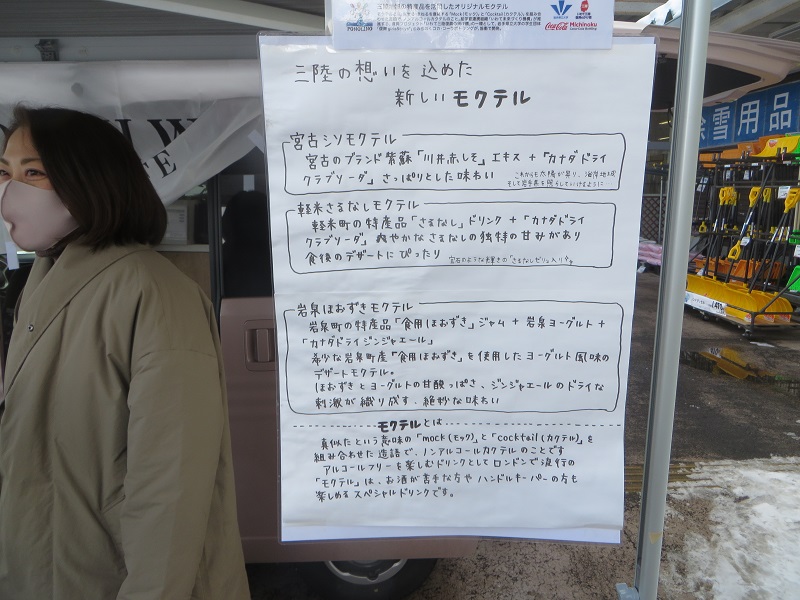 三陸の想いを込めた
新しいモクテル
宮古シソモクテル
宮古のブランド紫蘇「川井赤しそ」エキス + 「カナダドライ
クラブソーダ」さっぱりとした味わい
これからも太陽が昇り、沿岸地域
そして岩手県を照らしていけるように…
軽米さるなしモクテル
軽米町の特産品「さるなし」ドリンク + 「カナダドライ
クラブソーダ」爽やかなさるなしの独特の甘みがあり
食後のデザートにぴったり
宝石のような天輝きの「さるなしゼリー」入り
岩泉ほおずきモクテル
岩泉町の特産品「食用ほおずき」ジャム + 岩泉ヨーグルト +
「カナダドライジンジャエール」
希少な岩泉町産「食用ほおずき」を使用したヨーグルト風味の
デザートモクテル。
ほおずきとヨーグルトの甘酸っぱさ、ジンジャエールのドライな
刺激が織り成す、絶妙な味わい
モクテルとは
真似たという意味の「mock(モック)」と「cocktail(カクテル)」を
組み合わせた造語で、ノンアルコールカクテルのことです
アルコールフリーを楽しむドリンクとしてロンドンで流行の
「モクテル」は、お酒が苦手な方やハンドルキーパーの方も
楽しめるスペシャルドリンクです。
Coca-Cola
Michinoku
除雪用品